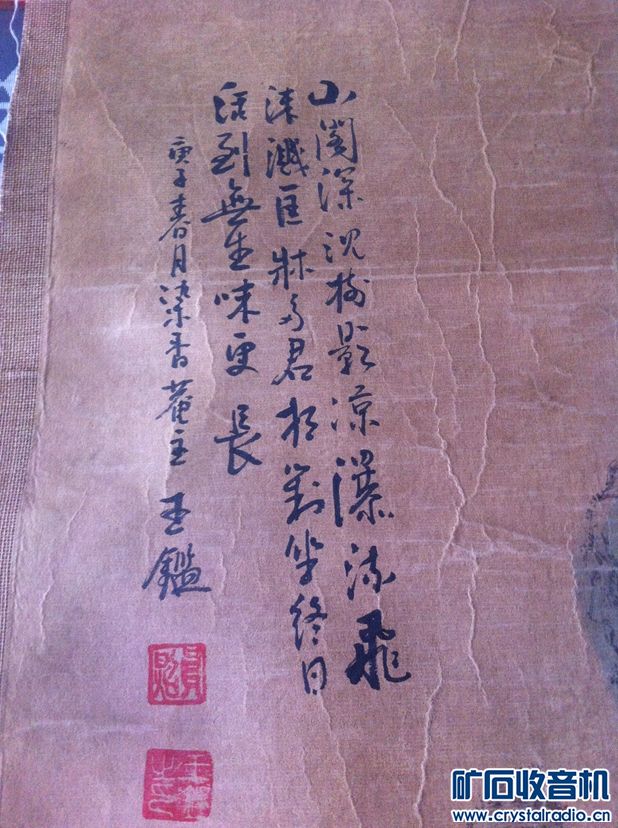 山閣深沉樹影涼瀑流飛
沫濺匡牀与君相對坐終日
話到無生味更長
庚子春月染香菴主王鑑
員照
王鑑之印
矿石收音机
www.crystalradio.cn